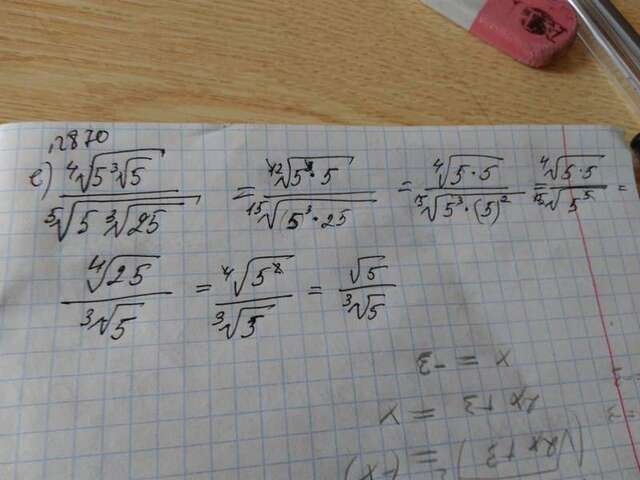 2870
e) ⁴√(5 ³√5) / ⁵√(5 ³√25) = ¹²√(5³·5) / ¹⁵√(5³·25) = ⁴√(5·5) / ¹⁵√(5³·(5)²) = ⁴√(5·5) / ¹⁵√5⁵ =
⁴√25 / ³√5 = ⁴√5² / ³√5 = √5 / ³√5
x = -3
2x+3 = x